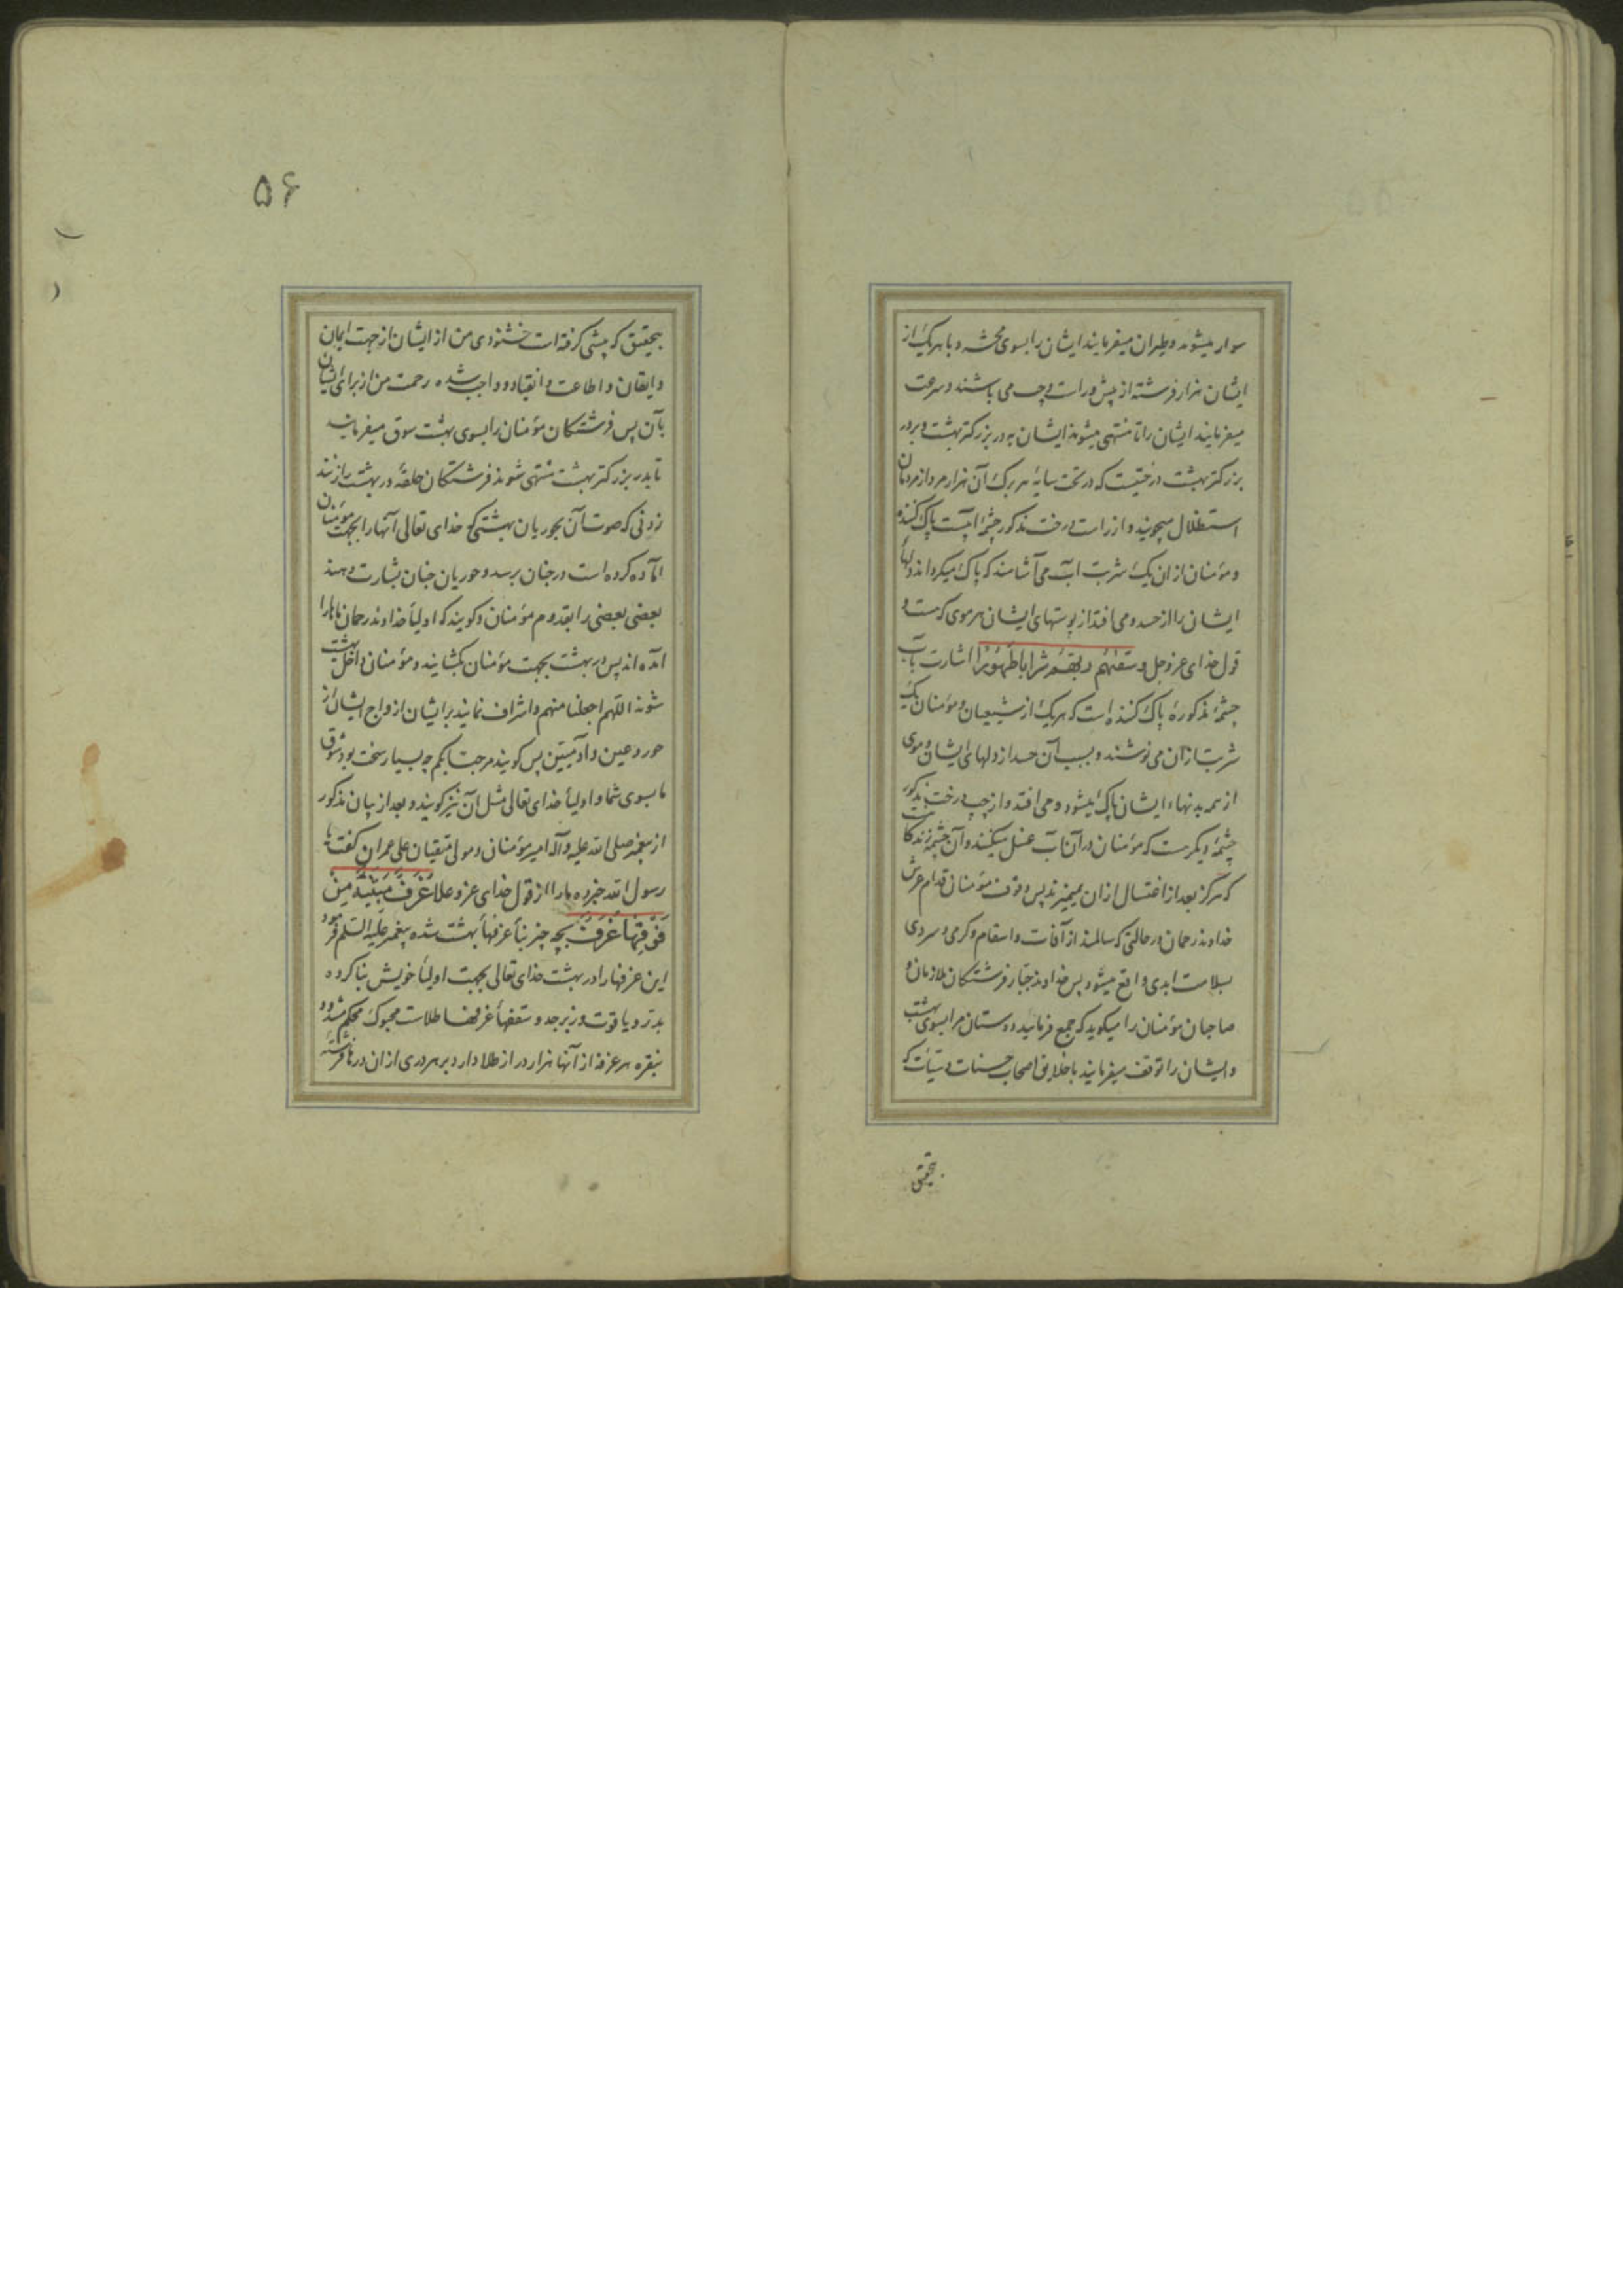 سوار میشوند و طیران میفرمایند ایشان را بسوی محشر و با هر یک از
ایشان هزار فرشته از پیش و راست و چپ می باشند و سرعت
میفرمایند ایشان را تا منتهی میشوند ایشان به در بزرکتر بهشت و بر در
بزرکتر بهشت درختیست که در تحت سایۀ هر برک آن هزار مرد از مردمان
استظلال میجویند و از راست درخت مذکور چشمۀ آبیست پاک کننده
و مؤمنان از ان یک شربت آب می آشامند که پاک میکرداند دلهای
ایشان را از حسد و می افتد از پوستهای ایشان هر موی که هست و
قول خدای عز و جل و سقیهم ربهم شرابا طهورا اشارت بآب
چشمۀ مذکورۀ پاک کننده است که هر یک از شیعیان و مؤمنان یک
شربت ازان می نوشند و بسبب آن حسد از دلهای ایشان و موی
از همه بدنهاء ایشان پاک میشود و می افتد و از چپ درخت مذکور
چشمۀ دیکرست که مؤمنان در آن آب غسل میکنند و آن چشمۀ زندکانیست
که هرکز بعد از اغتسال ازان نمیمیرند پس وقوف مؤمنان قدام عرش
خداوند رحمان در حالتی که سالمند از آفات و اسقام و کرمی و سردی
بسلامت ابدی واقع میشود پس خداوند جبار فرشتکان ملازمان و
صاحبان مؤمنان را میکوید که جمع فرمایید دوستان مرا بسوی بهشت
و ایشان را توقف میفرمایند با خلایق اصحاب حسنات و سیئات که
بتحقیق
۵۶
بتحقیق که پیشی کرفته است خشنودی من از ایشان از جهت ایمان
و ایقان و اطاعت و انقیاد و واجب شده رحمت من از برای ایشان
بآن پس فرشتکان مؤمنان را بسوی بهشت سوق میفرمایند
تا بدر بزرکتر بهشت منتهی شوند فرشتکان حلقۀ در بهشت را زنند
زدنی که صوت آن بحوریان بهشتی که خدای تعالی آنها را بجهت مؤمنان
آماده کرده است در جنان برسد و حوریان جنان بشارت دهند
بعضی بعضی را بقدوم مؤمنان و کویند که اولیأ خداوند رحمان ما را
آمده اند پس در بهشت بجهت مؤمنان بکشایند و مؤمنان داخل بهشت
شوند اللهم اجعلنا منهم و اشراف نمایند بر ایشان ازواج ایشان از
حور و عین و آدمیین پس کویند مرحبا بکم چه بسیار سخت بود شوق
ما بسوی شما و اولیأ خدای تعالی مثل آن نیز کویند و بعد از بیان مذکور
از پیغمبر صلی الله علیه و آله امیر مؤمنان و مولی متقیان علی عمران کفت یا
رسول الله خبر ده ما را از قول خدای عز و علا غرف مبنیة من
فوقها غرف بچه چیز بنأ غرفهأ بهشت شده پیغمبر علیه السلم فرمود
این غرفها را در بهشت خدای تعالی بجهت اولیأ خویش بنا کرده
بدر و یاقوت و زبرجد و سقفهأ غرفها طلاست محبوک محکم شده
بنقره هر غرفه از آنها هزار در از طلا دارد بر هر دری ازان درها فرشته